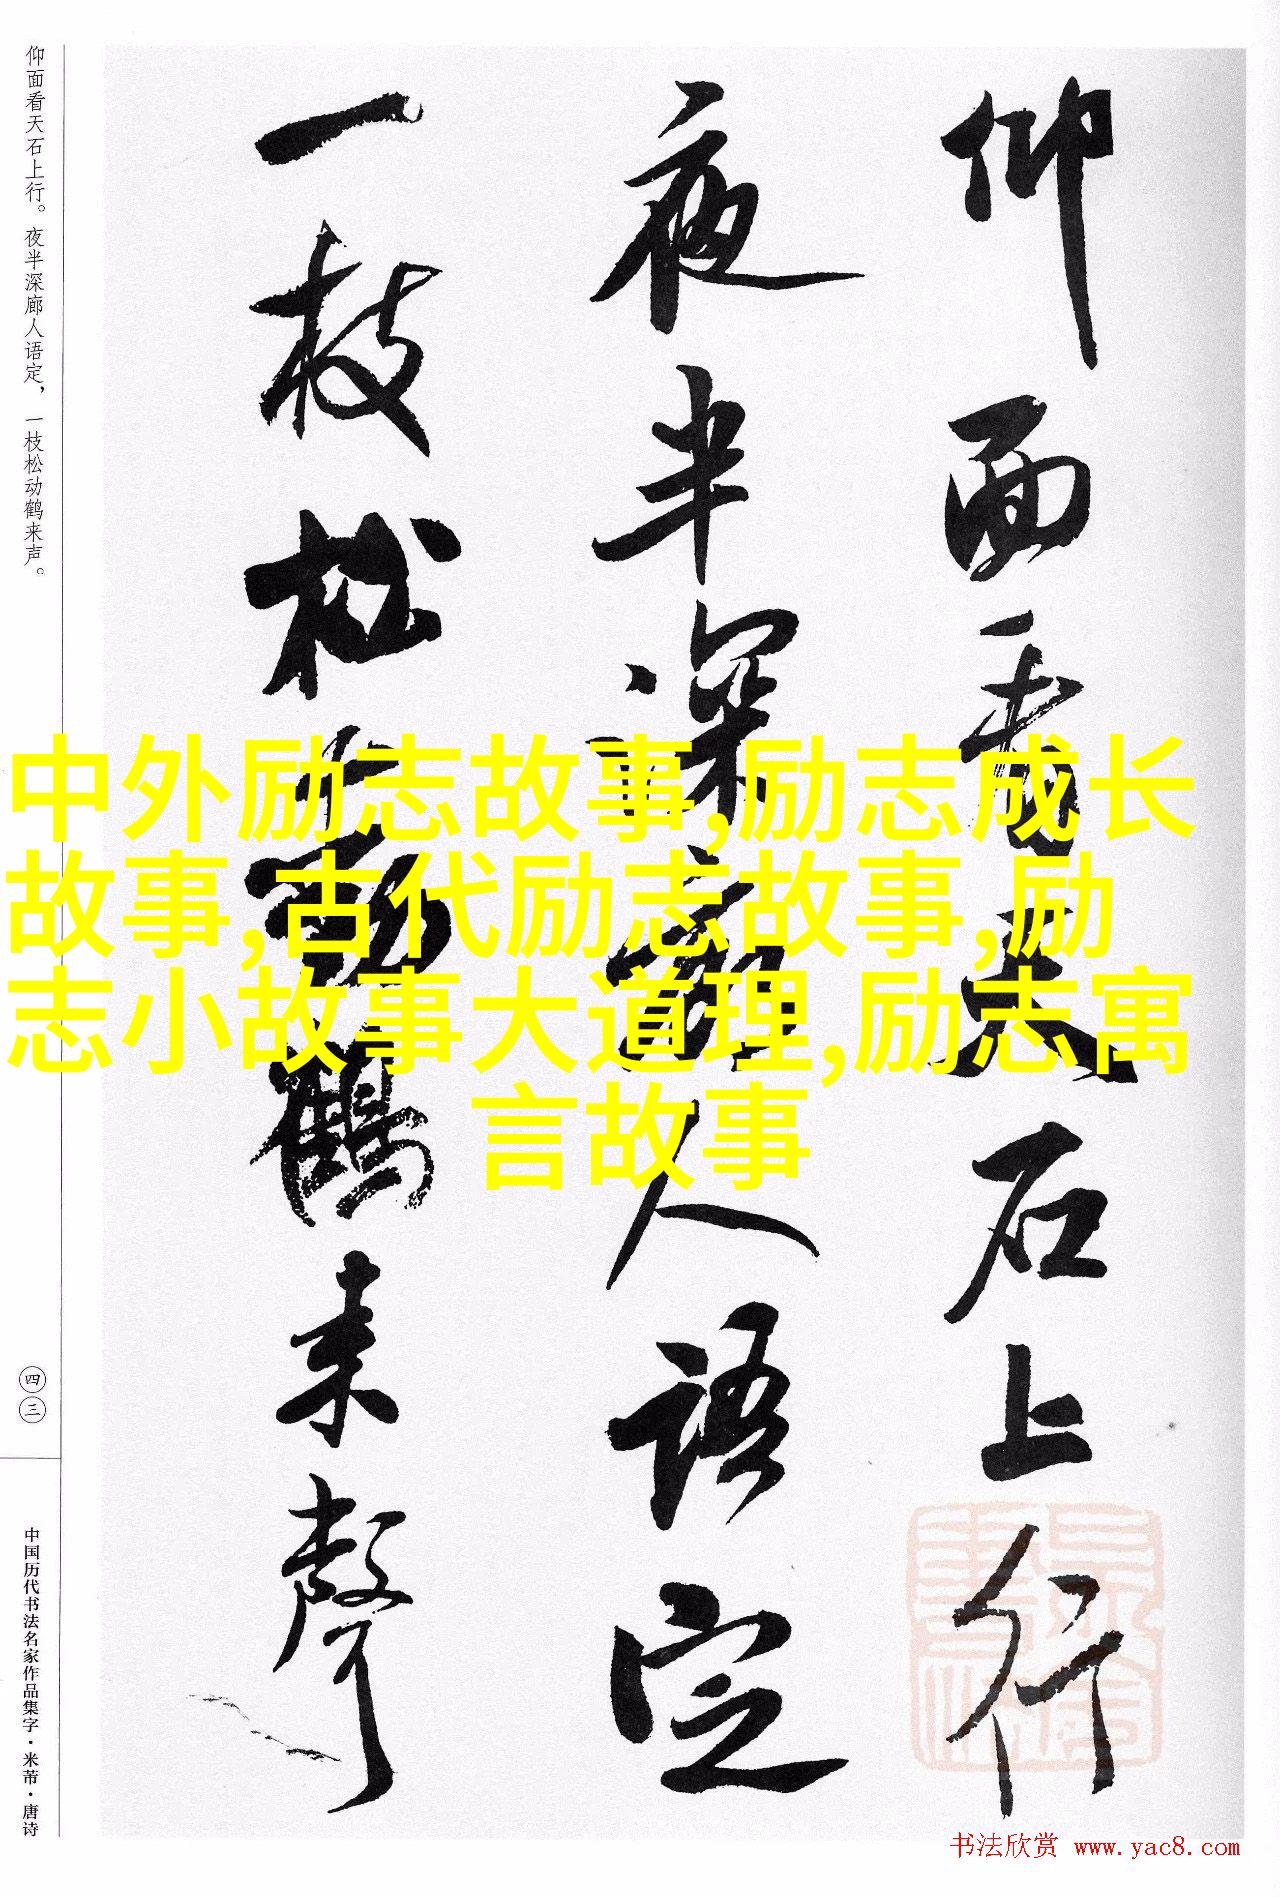 仰面看天石上行
夜半深廊人语定
一枝松动鹤来声
仰面看天石上行。夜半深廊人语定，一枝松动鹤来声。
四三
中国历代书法名家作品集字·米芾·唐诗
中外励志故事,励志成长
故事,古代励志故事,励
志小故事大道理,励志寓
言故事
书法欣赏 www.yac8.com